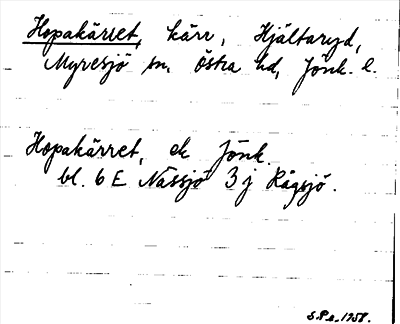 Hopakärret, kärr, Hjältaryd,
Myresjö sn, Östra hd, Jönk. l.
Hopakärret, ek Jönk.
bl. 6 E Nässjö 3 j Rågsjö.
1958.